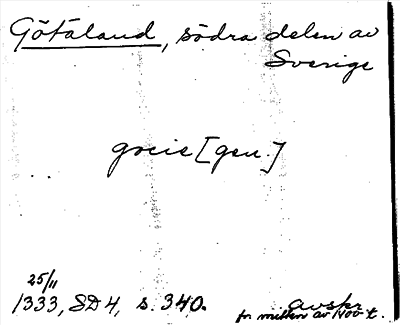 Götaland, södra delen av
Sverige
gocie [gen.]
25/11
1333, SD 4, s. 340.
avskr.
fr. mitten av 1400-t.